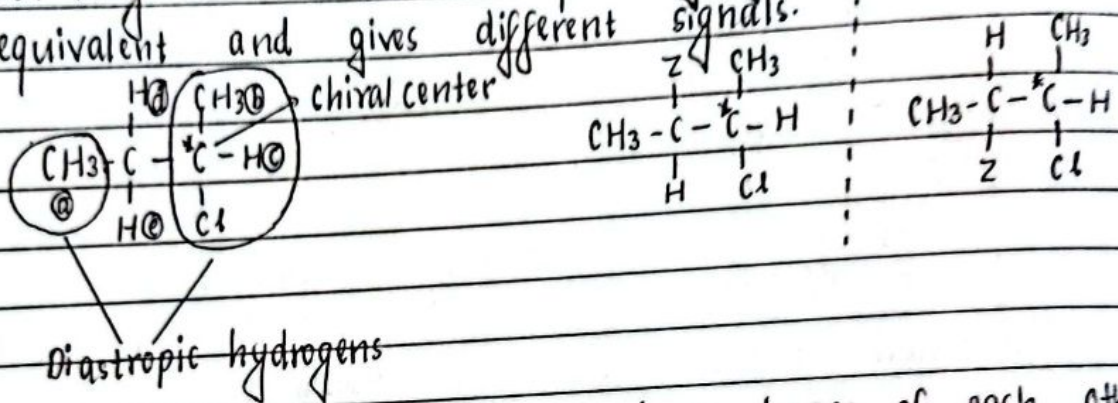 equivalent and gives different signals.
Hⓓ CH3ⓑ chiral center
CH3 - C - *C - Hⓒ
ⓐ
Hⓔ Cl
Z CH3
CH3 - C - *C - H
H Cl
H CH3
CH3 - C - *C - H
Z Cl
Diastropic hydrogens
of each